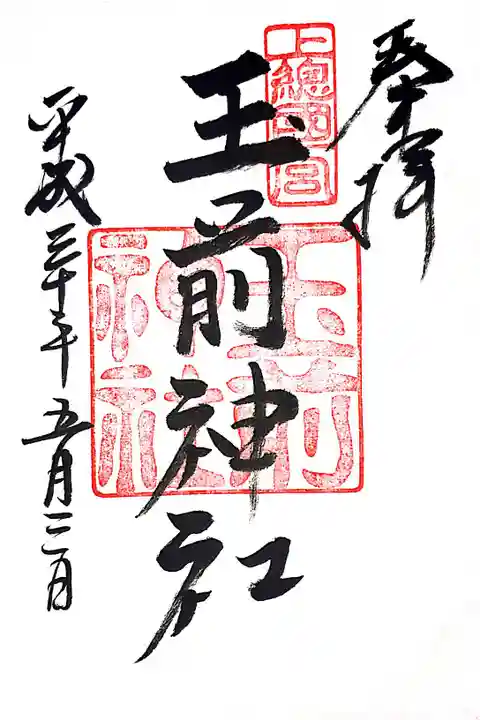 奉拝
上總國一宮
玉前神社
玉前
神社
平成三十年五月二日